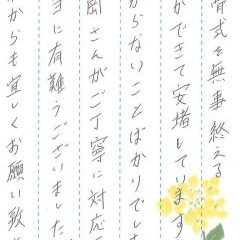 骨式を無事終える
ができて安堵しています
からないことばかりでし
岡さんがご丁寧に対応
当に有難うございました
からも宜しくお願い致